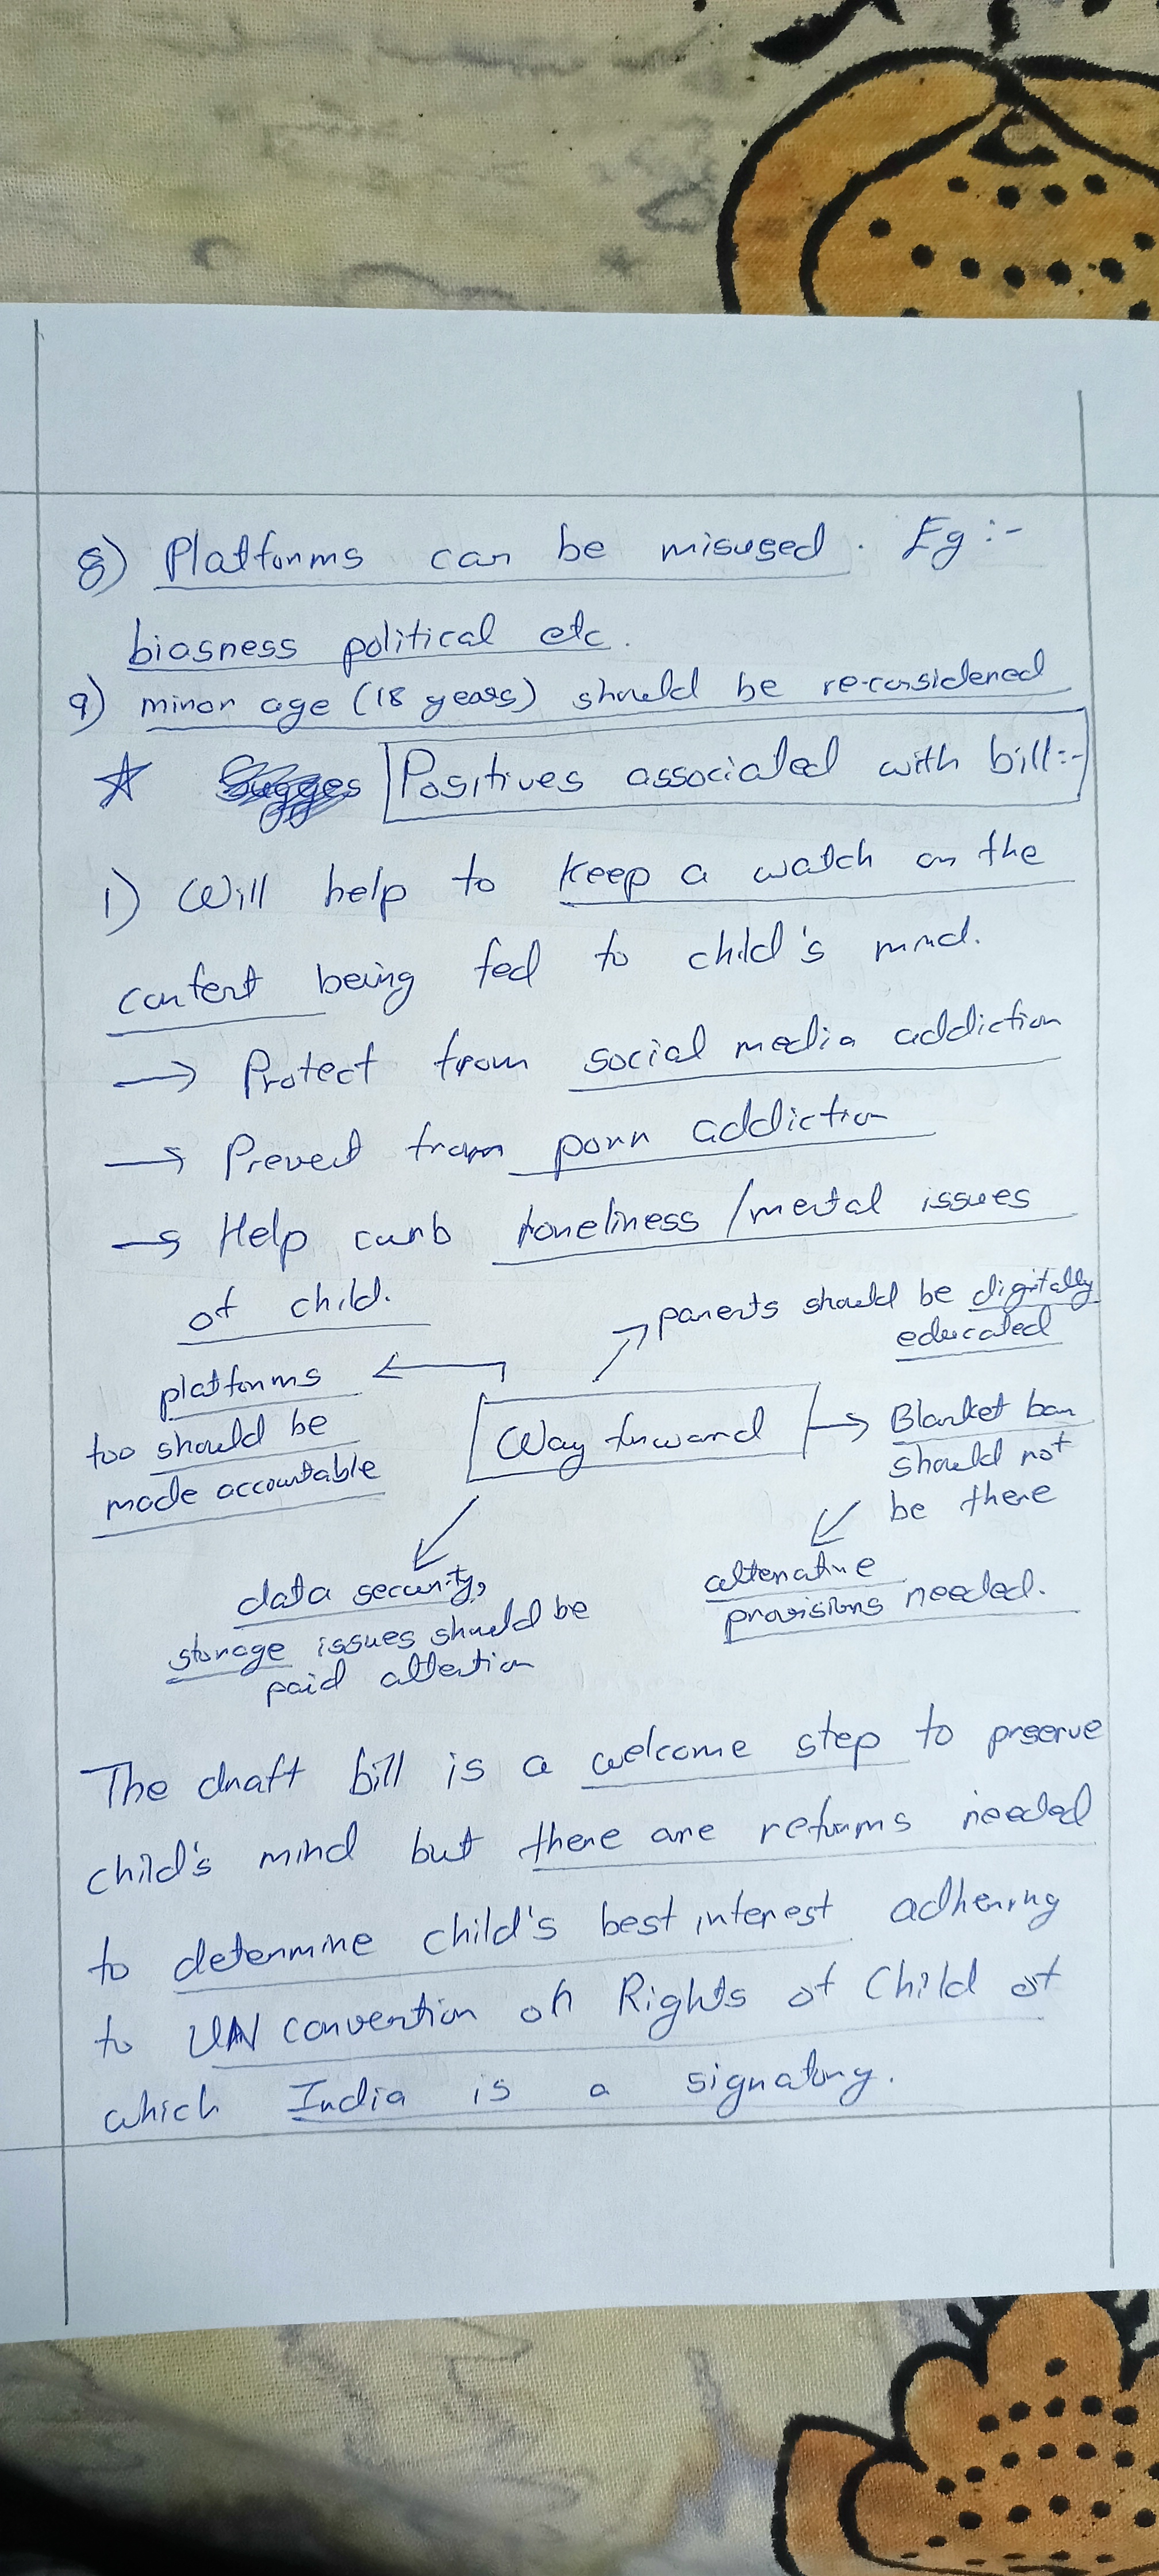 8) Platforms can be misused. Eg:-
biasness political etc.
9) minor age (18 years) should be re-considered
Positives associated with bill:-
1) Will help to keep a watch on the
content being fed to child's mind.
→ Protect from social media addiction
→ Prevent from porn addiction
→ Help curb loneliness / mental issues
of child.
parents should be digitally
educated
platforms
too should be
made accountable
Way forward
Blanket ban
should not
be there
alternative
provisions needed.
data security,
storage issues should be
paid attention
The draft bill is a welcome step to preserve
child's mind but there are reforms needed
to determine child's best interest adhering
to UN convention on Rights of Child of
which India is a signatory.